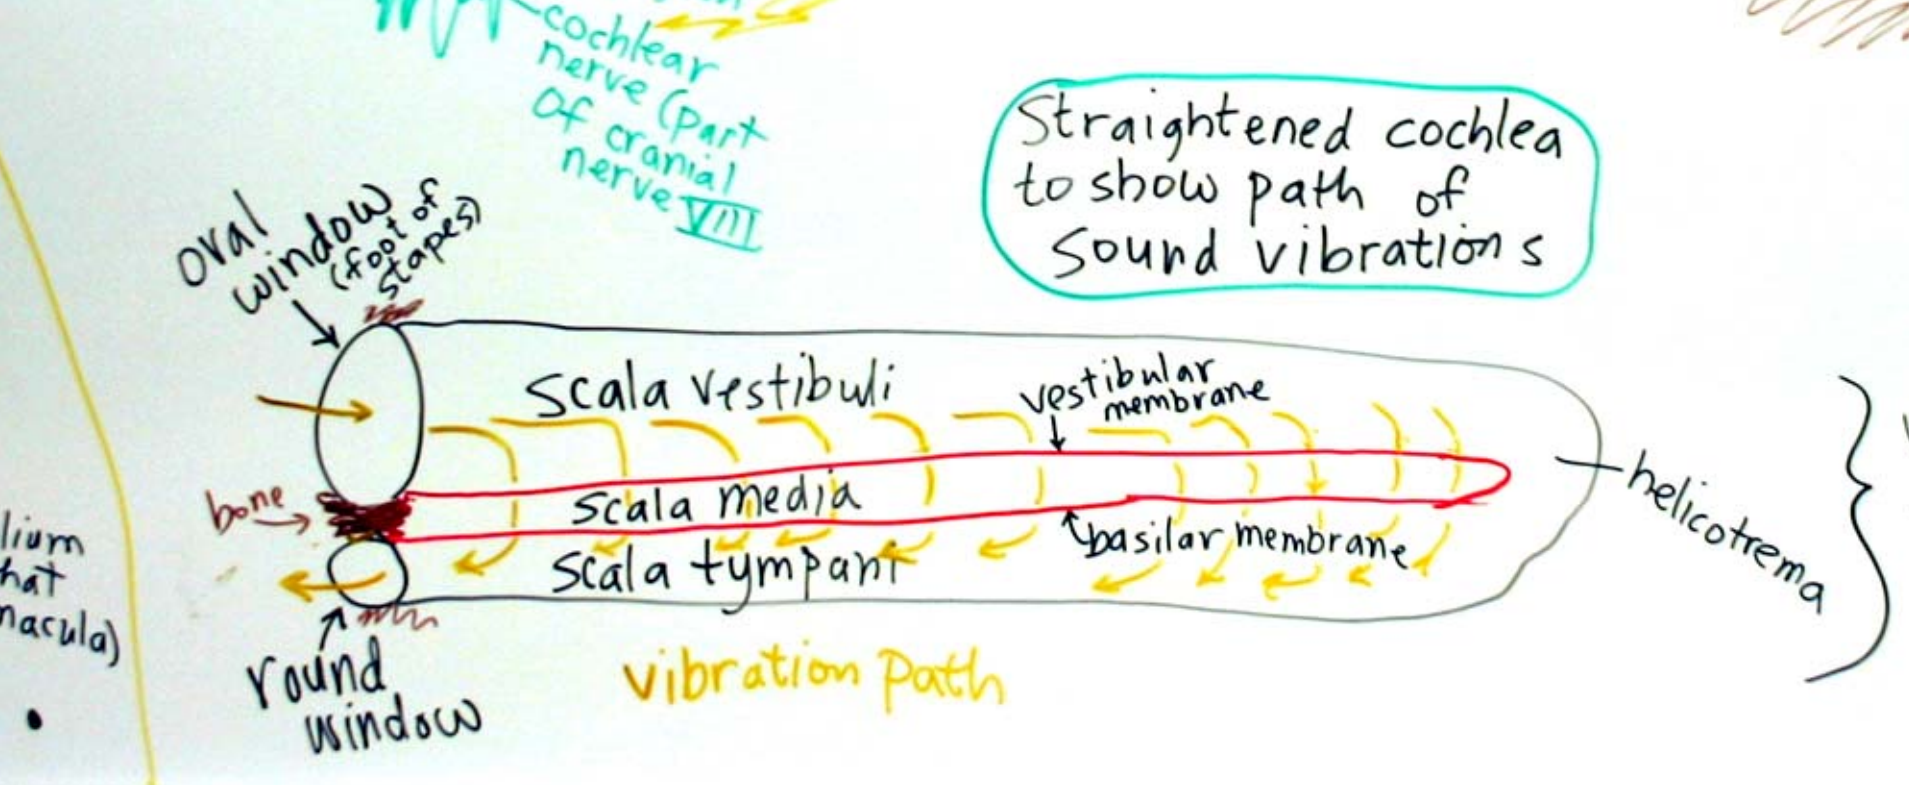 cochlear
nerve (part
of cranial
nerve VIII
Straightened cochlea
to show path of
sound vibrations
oval
window
(foot of
stapes)
scala vestibuli
vestibular
membrane
bone
scala media
basilar membrane
scala tympani
helicotrema
round
window
vibration path
lium
hat
macula)